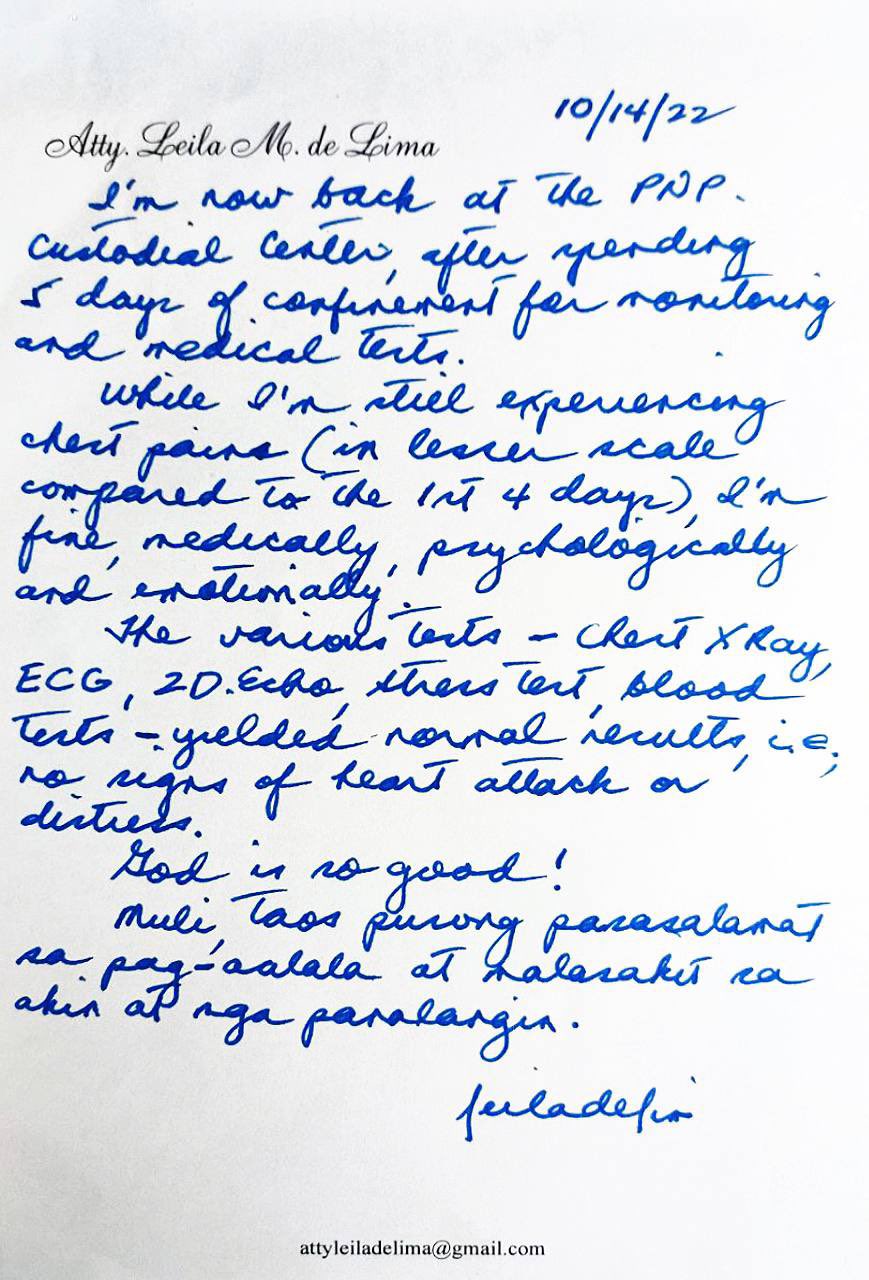 10/14/22
Atty. Leila M. de Lima
I'm now back at the PNP
Custodial Center, after spending
5 days of confinement for monitoring
and medical tests.
While I'm still experiencing
chest pains (in lesser scale
compared to the 1st 4 days), I'm
fine, medically, psychologically
and emotionally.
The various tests – Chest X Ray,
ECG, 2D.Echo, stress test, blood
tests – yielded normal results, i.e.,
no signs of heart attack or
distress.
God is so good!
Muli, taos pusong pasasalamat
sa pag-aalala at malasakit sa
akin at mga panalangin.
leiladelima
attyleiladelima@gmail.com